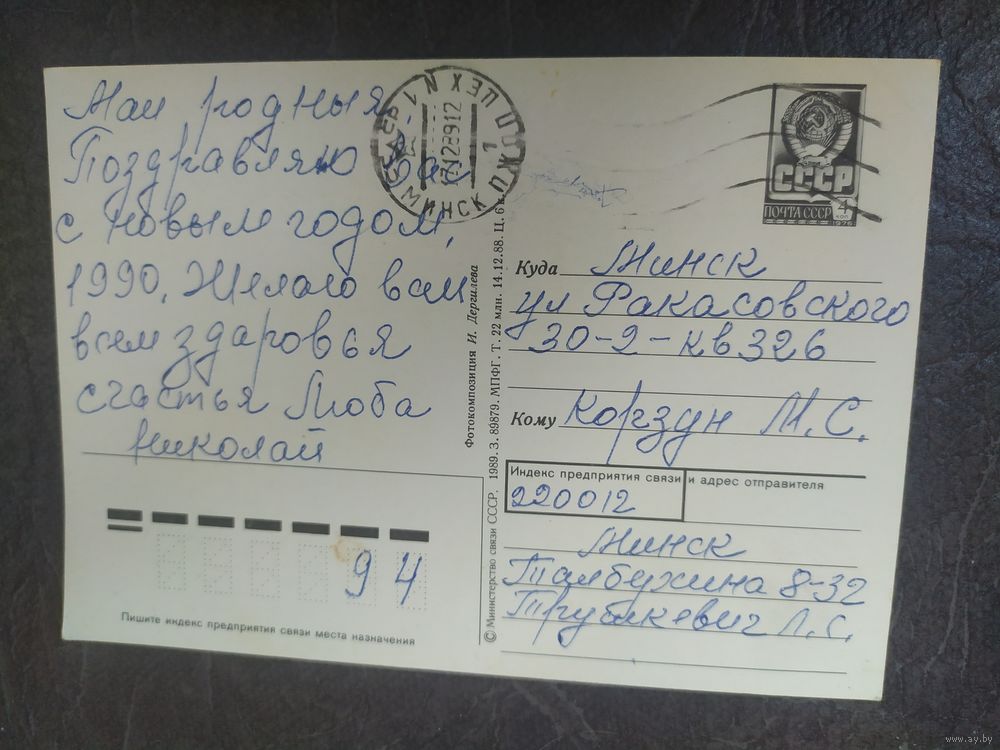 Маи родныя
Поздравляю Вас
с Новым годом,
1990. Желаю вам
всем здаровья
счастья Люба
Николай
МИНСК
17128912
ПОЧТА СССР
СССР
4
КОП
1976
Куда Минск
ул Ракасовского
30-2-кв 326
Кому Корзун М.С.
Индекс предприятия связи и адрес отправителя
220012
Минск
Талбухина 8-32
Трубкевич Л.С.
94
Пишите индекс предприятия связи места назначения
Фотокомпозиция И. Дергилева
© Министерство связи СССР. 1989. З. 89879. МПФГ. Т. 22 млн. 14.12.88. Ц. 6 к.
www.ay.by